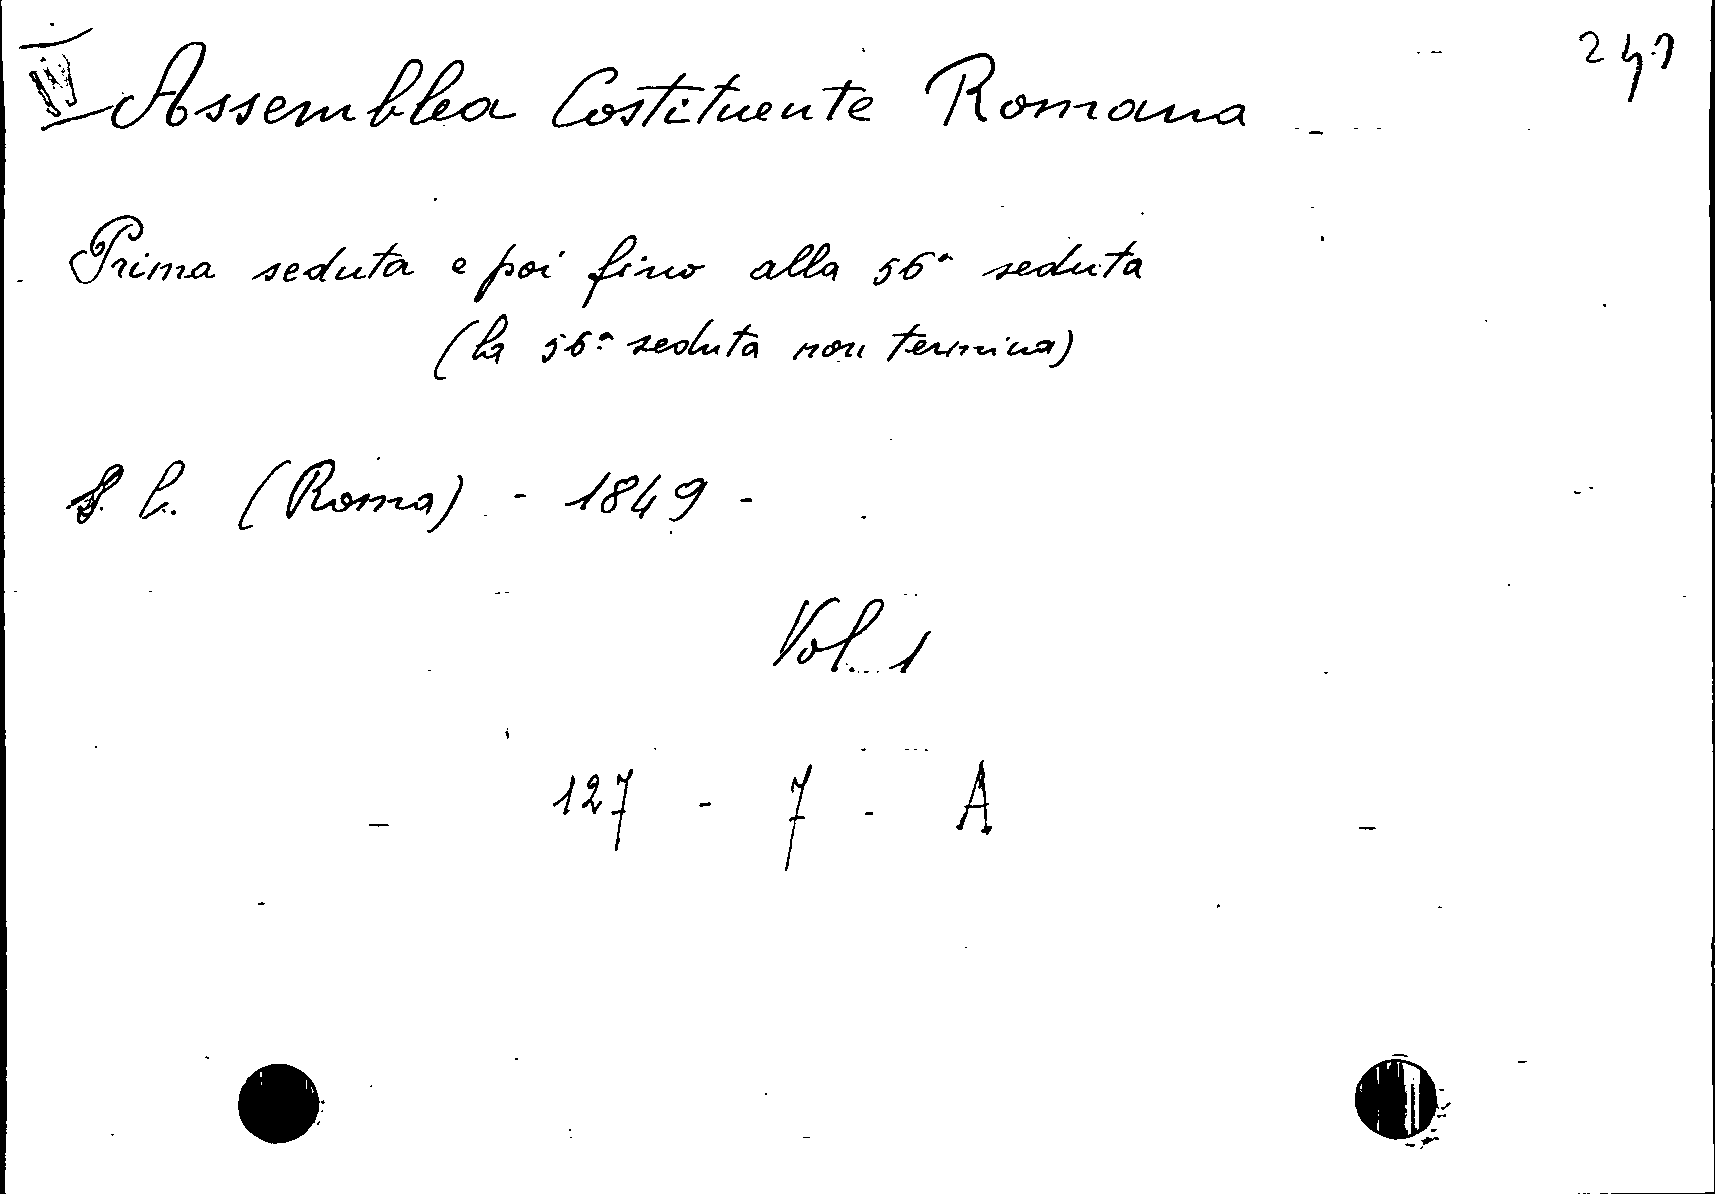 Assemblea Costituente Romana
Prima seduta e poi fino alla 56ª seduta
(la 56ª seduta non termina)
S. l. (Roma) - 1849 -
Vol. 1
127 - 7 - A